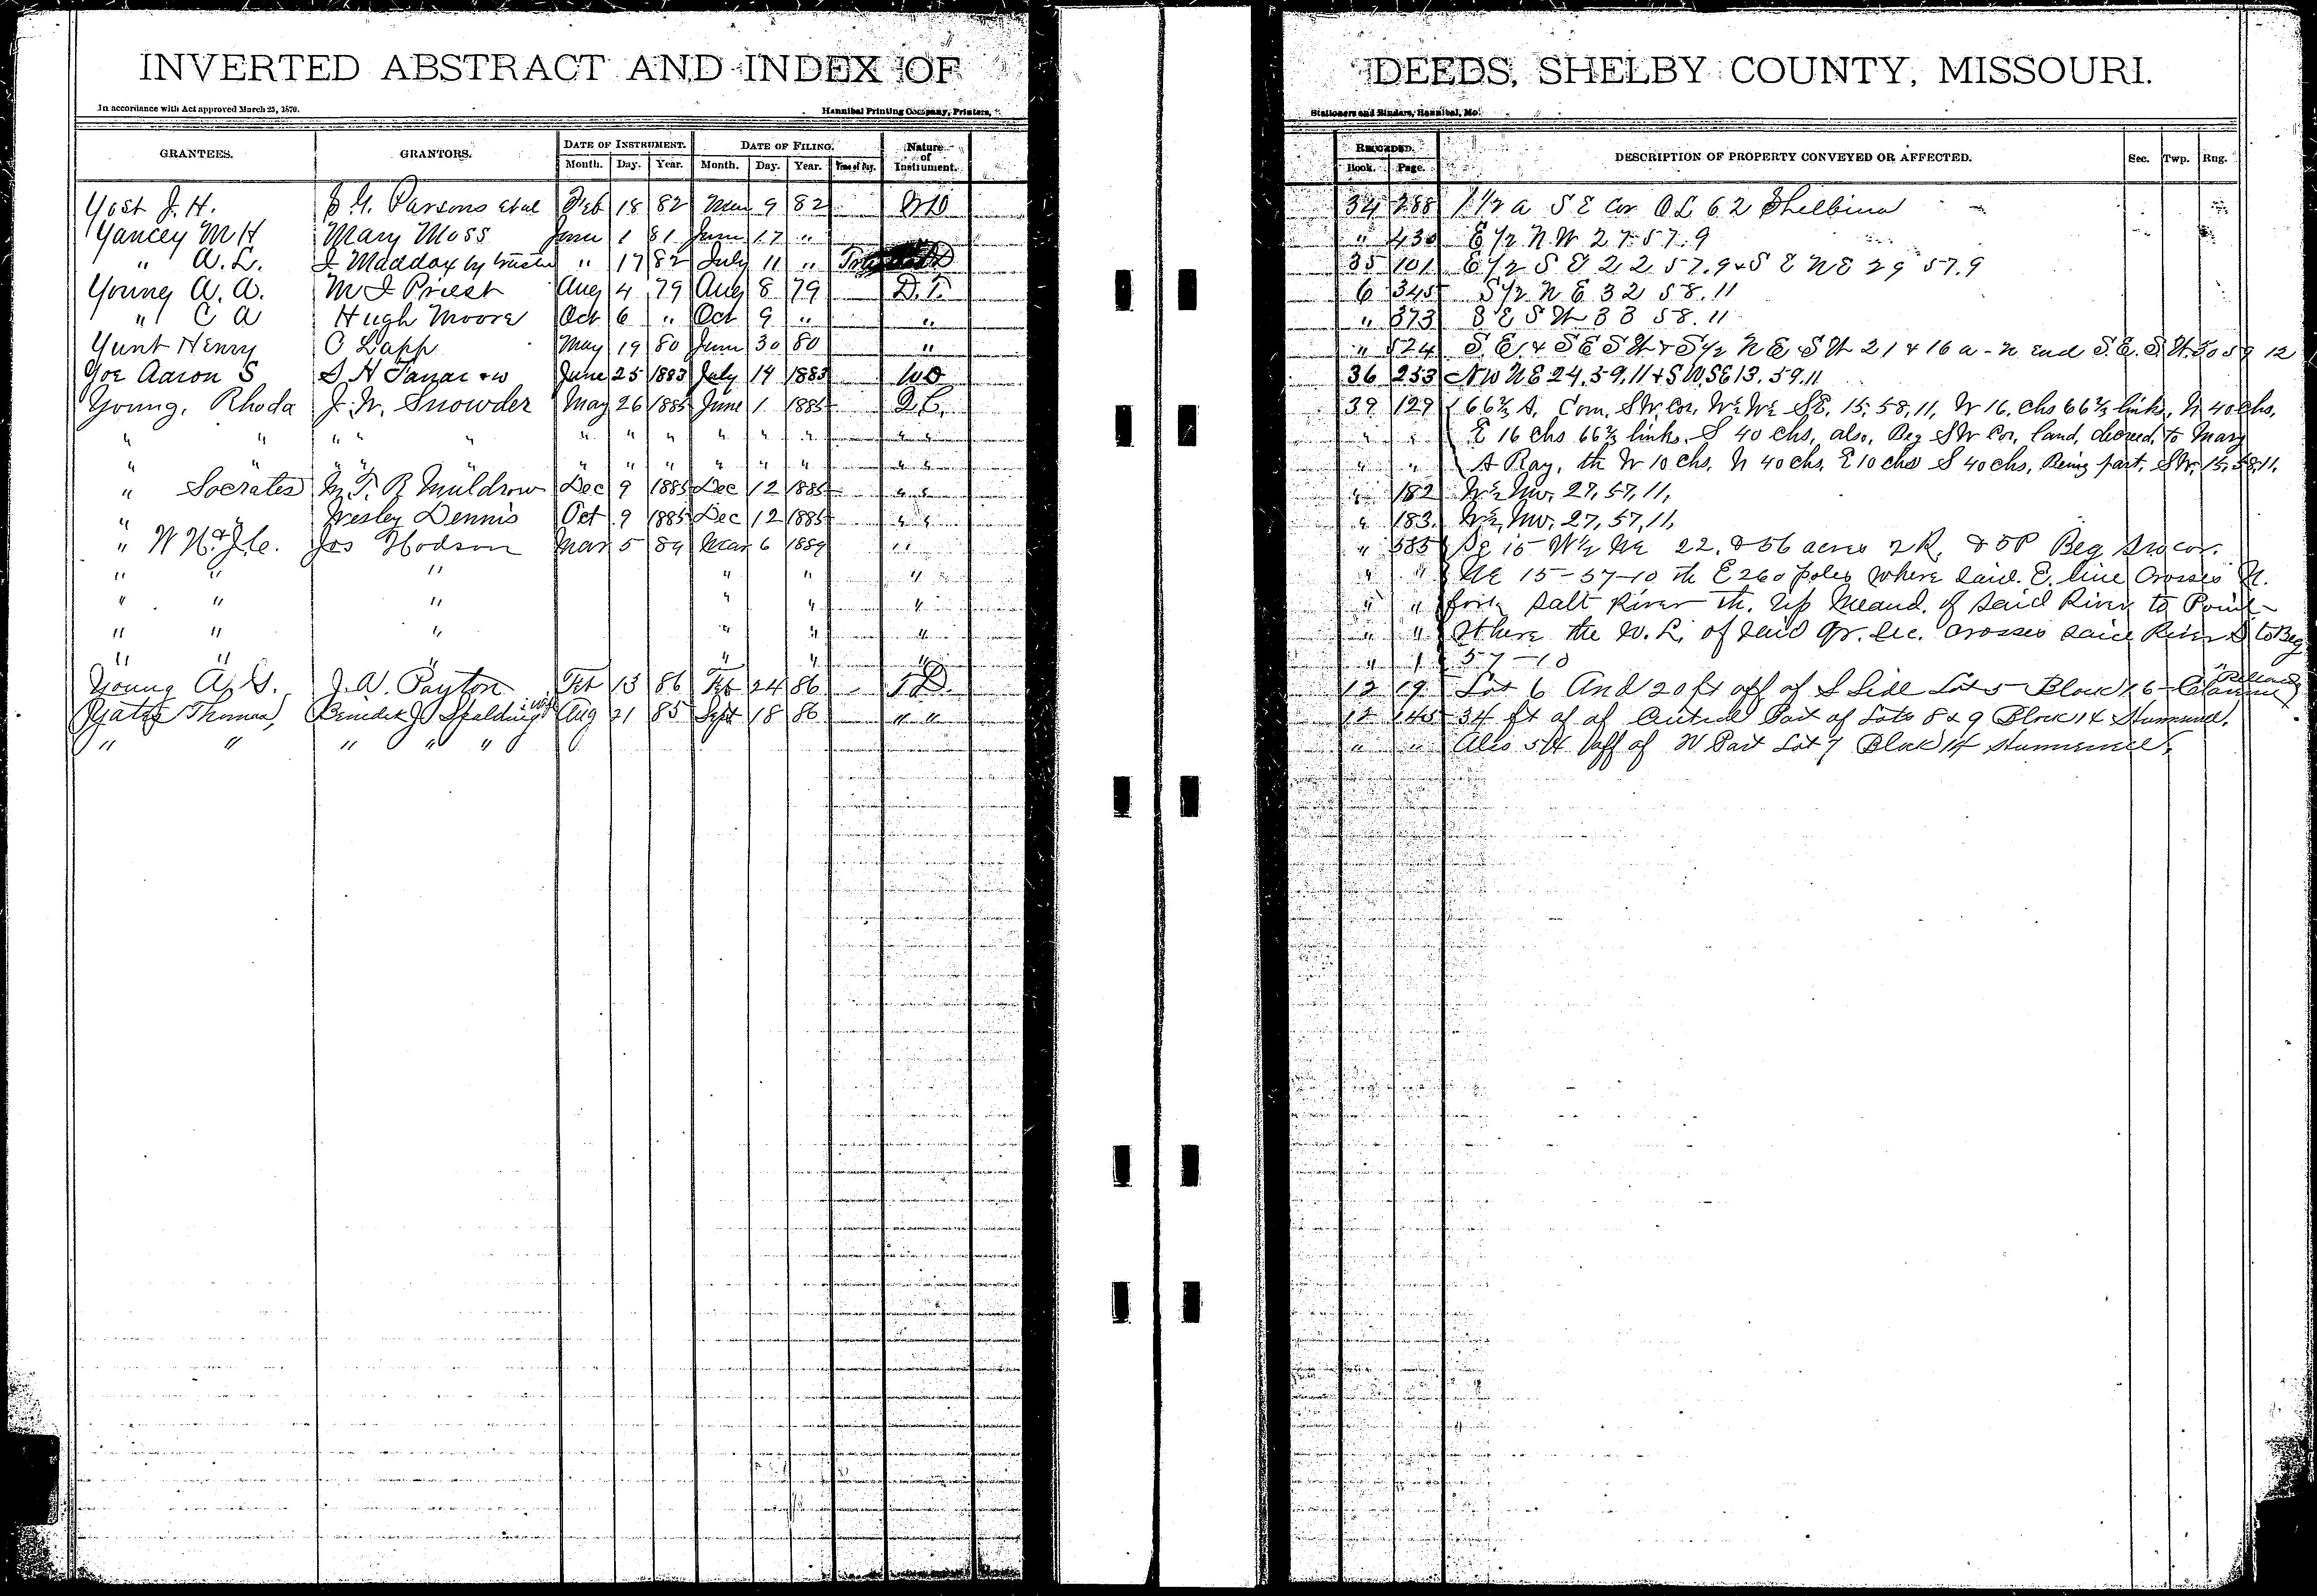 INVERTED ABSTRACT AND INDEX OF DEEDS, SHELBY COUNTY, MISSOURI.
In accordance with Act approved March 25, 1870. Hannibal Printing Company, Printers, Stationers and Binders, Hannibal, Mo.
GRANTEES. GRANTORS. DATE OF INSTRUMENT. DATE OF FILING. Nature of Instrument. RECORDED. DESCRIPTION OF PROPERTY CONVEYED OR AFFECTED. Sec. Twp. Rng.
Month. Day. Year. Month. Day. Year. Time of Day. Book. Page.
Yost J. H. Parsons et al Feb 18 82 Mar 9 82 WD 34 288 1 1/2 a S E Cor O L 62 Shelbina
Yancey M H Mary Moss June 1 81 June 17 " " 430 E 1/2 N.W 27.57.9
" A. L. I Maddox by trustee " 17 82 July 11 " 35 101 E 1/2 S E 22 57.9 + S E NE 29 57.9
Young A. A. M I Priest Aug 4 79 Aug 8 79 D.T. 6 345 S 1/2 N E 32 58.11
" C A Hugh Moore Oct 6 " Oct 9 " " " 373 S E S W 33 58.11
Yunt Henry C Lapp May 19 80 June 30 80 " " 524 S.E. + S E S W + S 1/2 N E S W 21 + 16 a - N End S.E. S W 30 59 12
Yoe Aaron S S H + w June 25 1883 July 14 1883 WD 36 253 NW NE 24.59.11 + SW, SE 13.59.11
Young, Rhoda J. W. Snowder May 26 1885 June 1 1885 Q.C. 39 129 66 2/3 A. Com. SW. Cor. W 1/2 W 1/2 SE. 15, 58, 11, W 16. Chs 66 2/3 links, N 40 Chs,
" " " " " " " " " " " " " " E 16 Chs 66 2/3 links. S 40 Chs, also, Beg SW Cor, land, deeded, to Mary
" " " " " " " " " " " " " " A Ray, th W 10 Chs, N 40 Chs, E 10 chs S 40 chs, Being part, SW, 15, 58, 11,
" Socrates M. F. R Muldrow Dec 9 1885 Dec 12 1885 " " " 182 W 1/2 NW, 27, 57, 11,
" " Wesley Dennis Oct 9 1885 Dec 12 1885 " " " 183. W 1/2 NW, 27, 57, 11,
" W H. & J. C. Jos Hodson Mar 5 89 Mar 6 1889 " " " 585 SE 15 W 1/2 NE 22. & 56 acres 2 R. & 5 P Beg SW cor.
" " " " " " " " NE 15-57-10 th E 260 poles where said. E. line Crosses N.
" " " " " " " " fork Salt River th. up Meand. of said River to Point
" " " " " " " " Where the W. L. of said Qr. Sec. crosses said River S to Beg
" " " " " " " " 57-10
Young A. G. J. A. Payton Feb 13 86 Feb 24 86 T D. 12 19 Lot 6 And 20 ft off of S Side Lot 5 Block 6
Yates Thomas, Benedict J. Spalding & wife Aug 21 85 Sept 18 86 " " 12 145 34 ft of of Central Part of Lots 8 & 9 Block 14 Hunnewell.
" " " " " " " Also 5 ft off of W Part Lot 7 Block 14 Hunnewell.